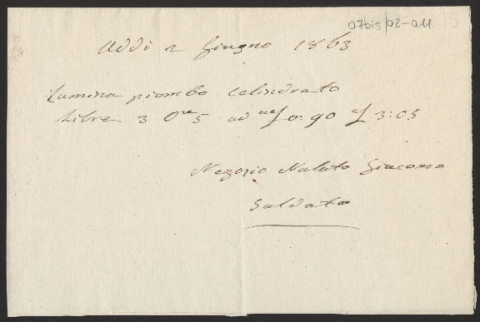 07bis/02-011
Addi 2 Giugno 1863
Lamina piombo Celindrato
Libre 3 On 5 ad £ 0:90 £ 3:05
Negozio Nalato Giacomo
Saldato